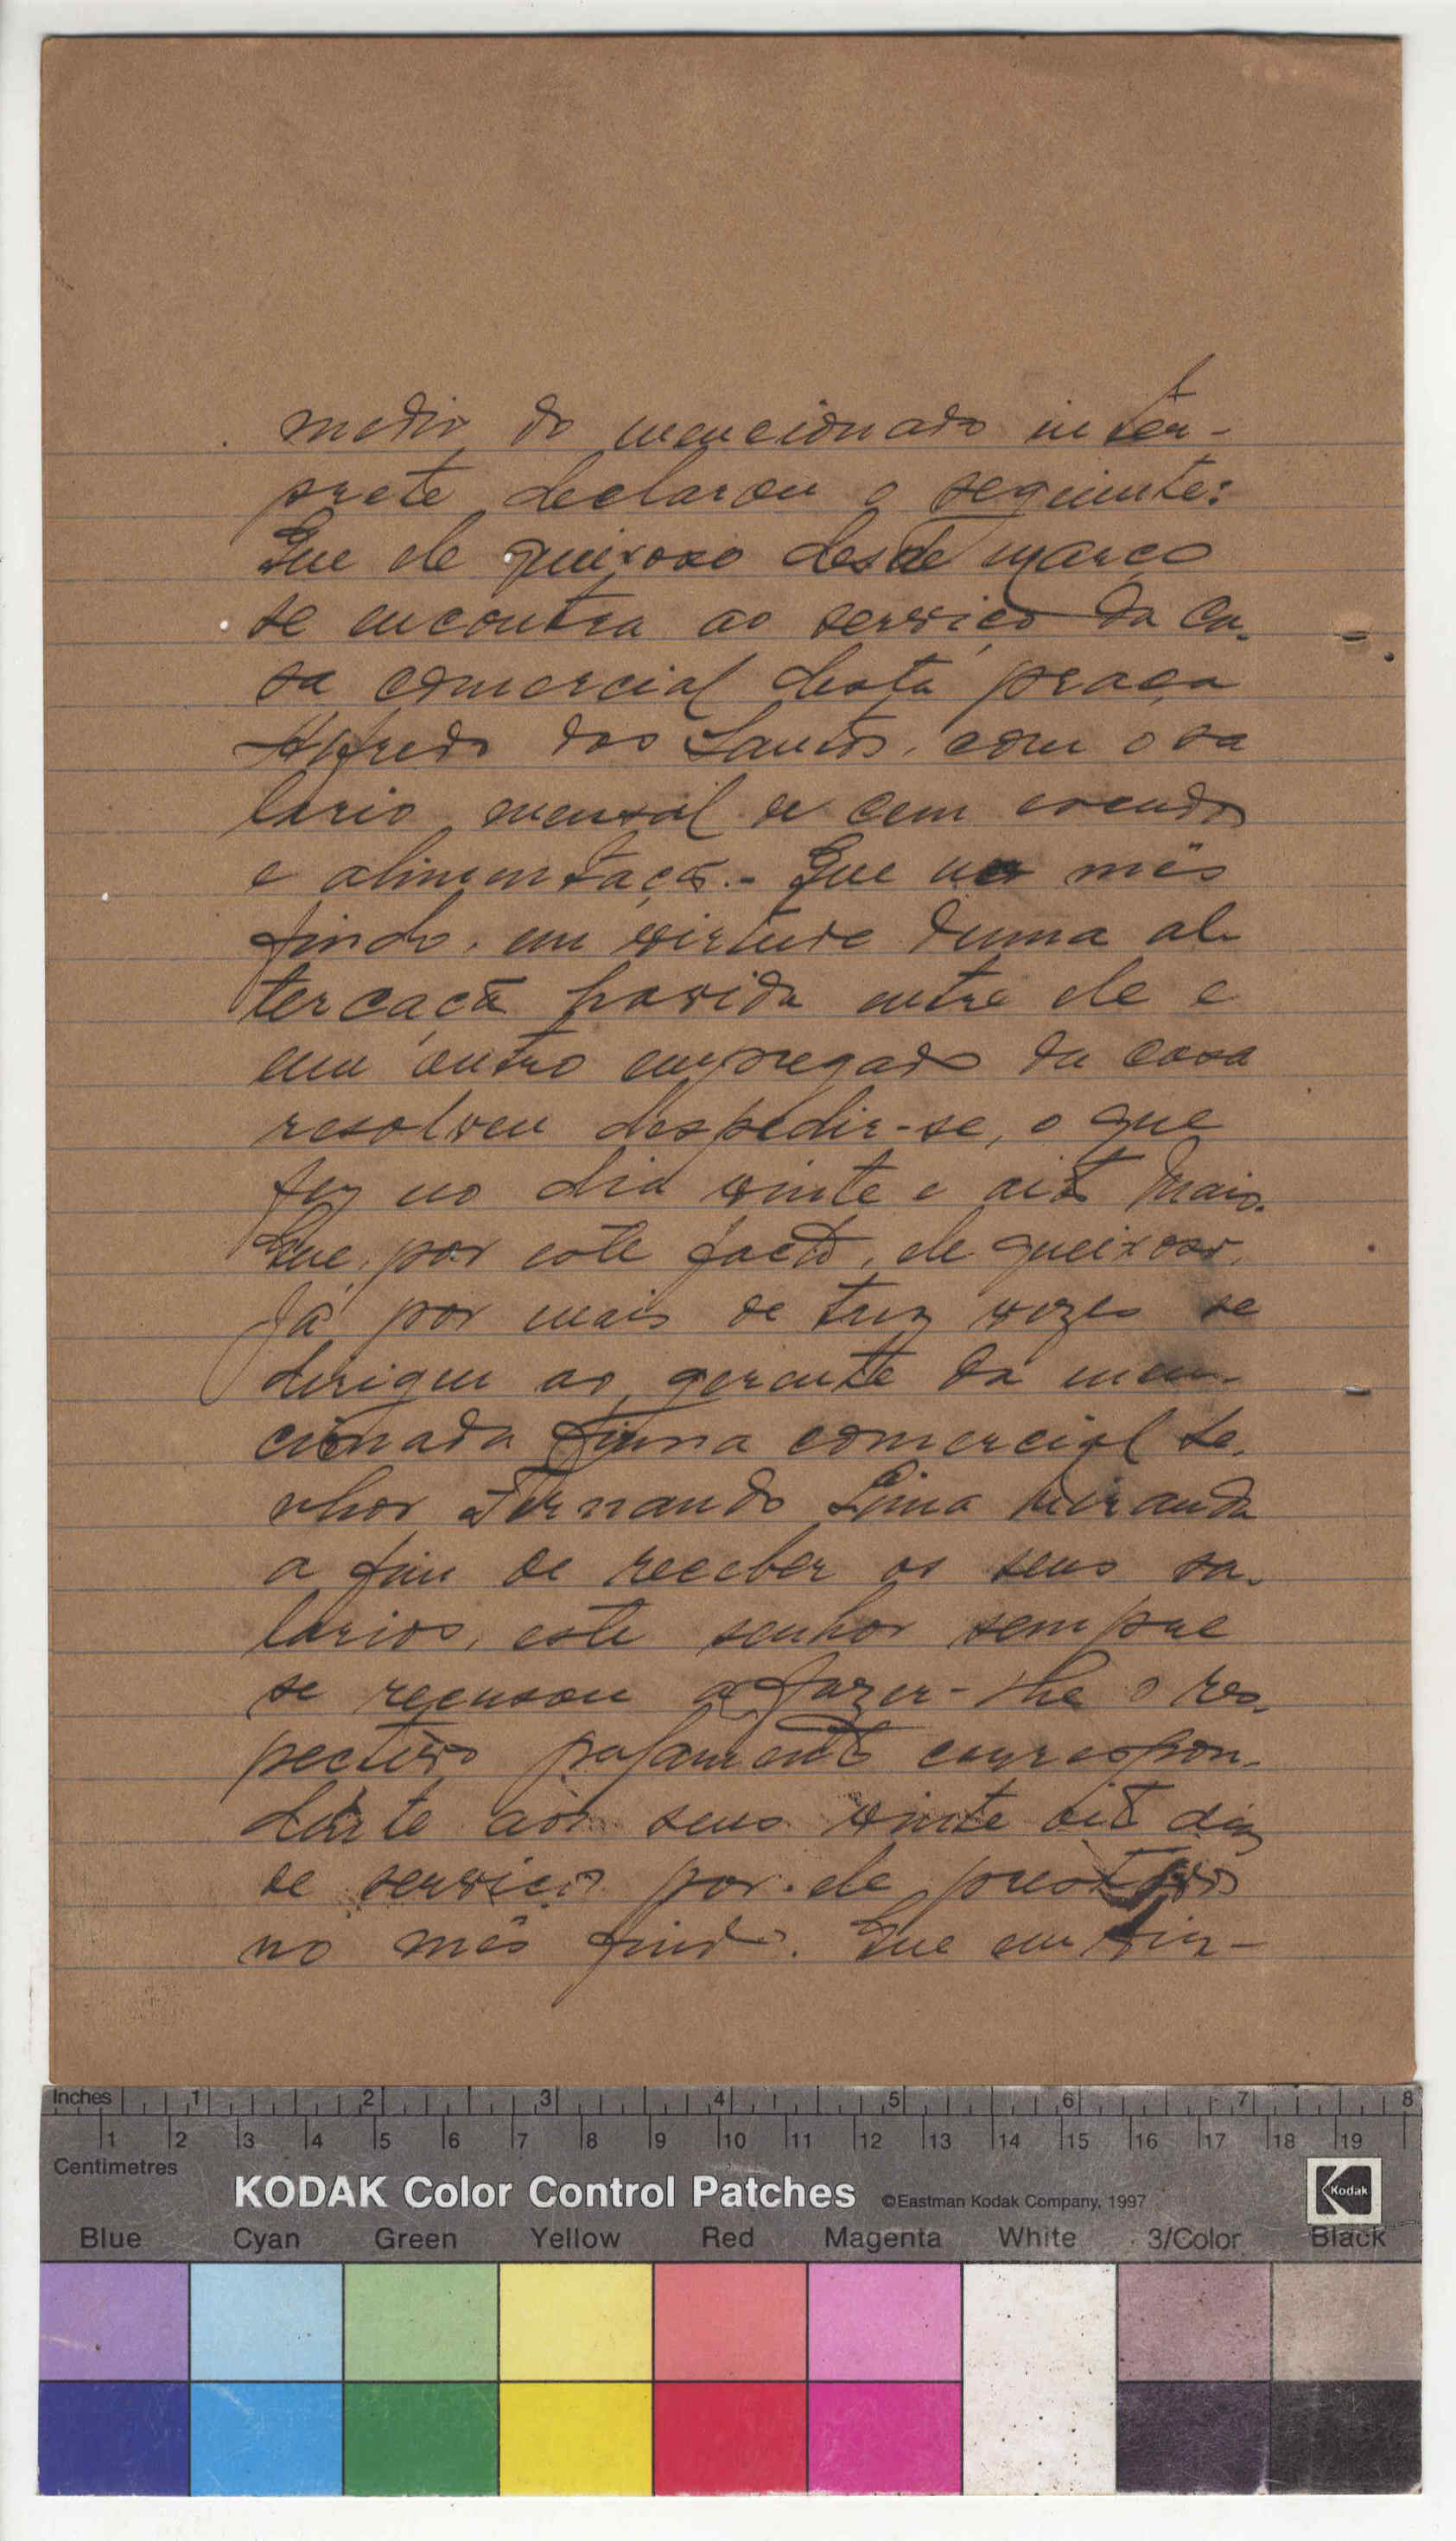 medio do mencionado inter-
prete declarou o seguinte:
Que ele queixoso desde março
se encontra ao serviço da ca-
sa comercial desta praça
Alfredo dos Santos, com o sa
lario mensal de cem escudos
e alimentação.- Que no mês
findo, em virtude duma al-
tercação havida entre ele e
um outro empregado da casa
resolveu despedir-se, o que
fez no dia vinte e oito Maio.
Que, por este facto, ele queixoso,
já por mais de trez vezes se
dirigiu ao gerente da men-
cionada firma comercial se-
nhor Fernando Lima Miranda
a fim de receber os seus sa-
larios, este senhor sempre
se recusou a fazer-lhe o res-
pectivo pagamento correspon-
dente aos seus vinte oito dias
de serviços por ele prestados
no mês findo. Que em vir-
Inches 1 2 3 4 5 6 7 8
1 2 3 4 5 6 7 8 9 10 11 12 13 14 15 16 17 18 19
Centimetres
KODAK Color Control Patches ©Eastman Kodak Company, 1997 Kodak
Blue Cyan Green Yellow Red Magenta White 3/Color Black